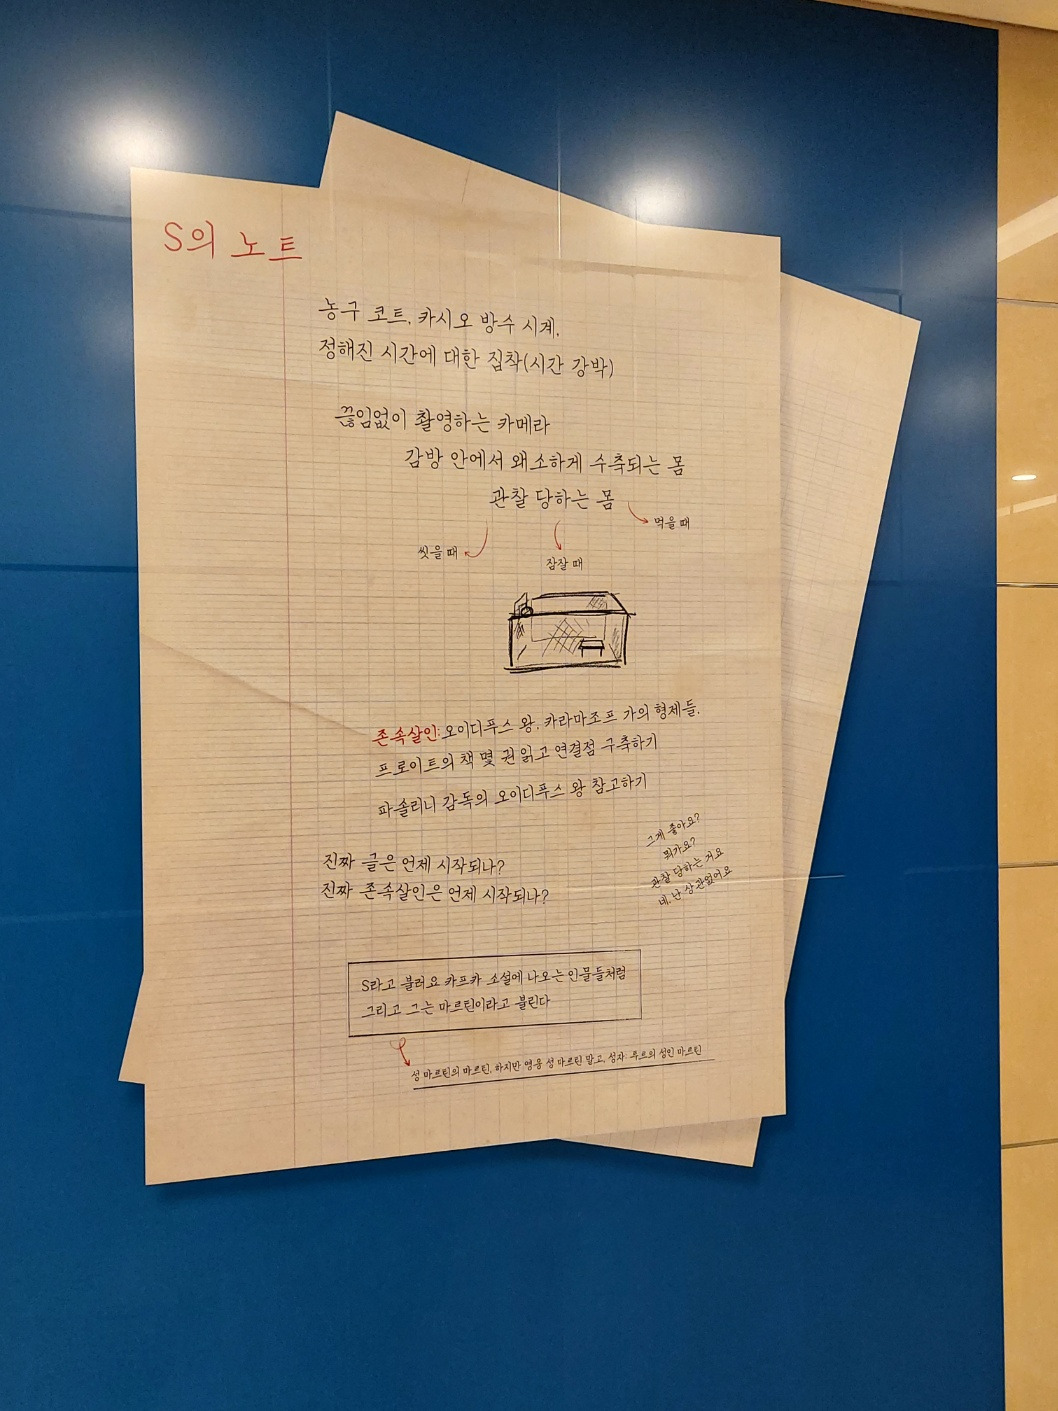 S의 노트
농구 코트, 카시오 방수 시계,
정해진 시간에 대한 집착(시간 강박)
끊임없이 촬영하는 카메라
감방 안에서 왜소하게 수축되는 몸
관찰 당하는 몸
먹을 때
씻을 때
잠잘 때
존속살인:오이디푸스 왕, 카라마조프 가의 형제들,
프로이트의 책 몇 권 읽고 연결점 구축하기
파솔리니 감독의 오이디푸스 왕 참고하기
그게 좋아요?
뭐가요?
관찰 당하는 거요
네, 난 상관없어요
진짜 글은 언제 시작되나?
진짜 존속살인은 언제 시작되나?
S라고 불러요 카프카 소설에 나오는 인물들처럼
그리고 그는 마르틴이라고 불린다
성 마르틴의 마르틴, 하지만 영웅 성 마르틴 말고, 성자: 투르의 성인 마르틴